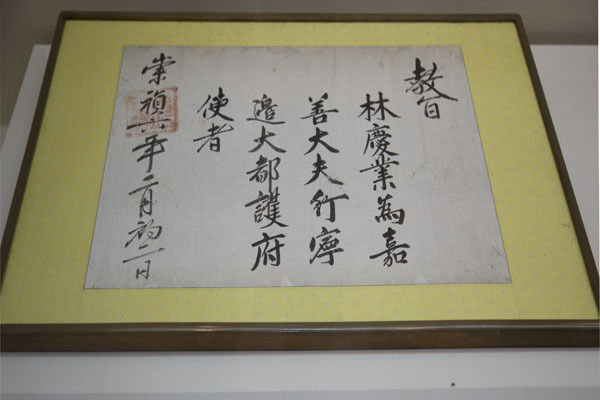 教旨
林慶業為嘉
善大夫行寧
邉大都護府
使者
崇禎六年二月初二日